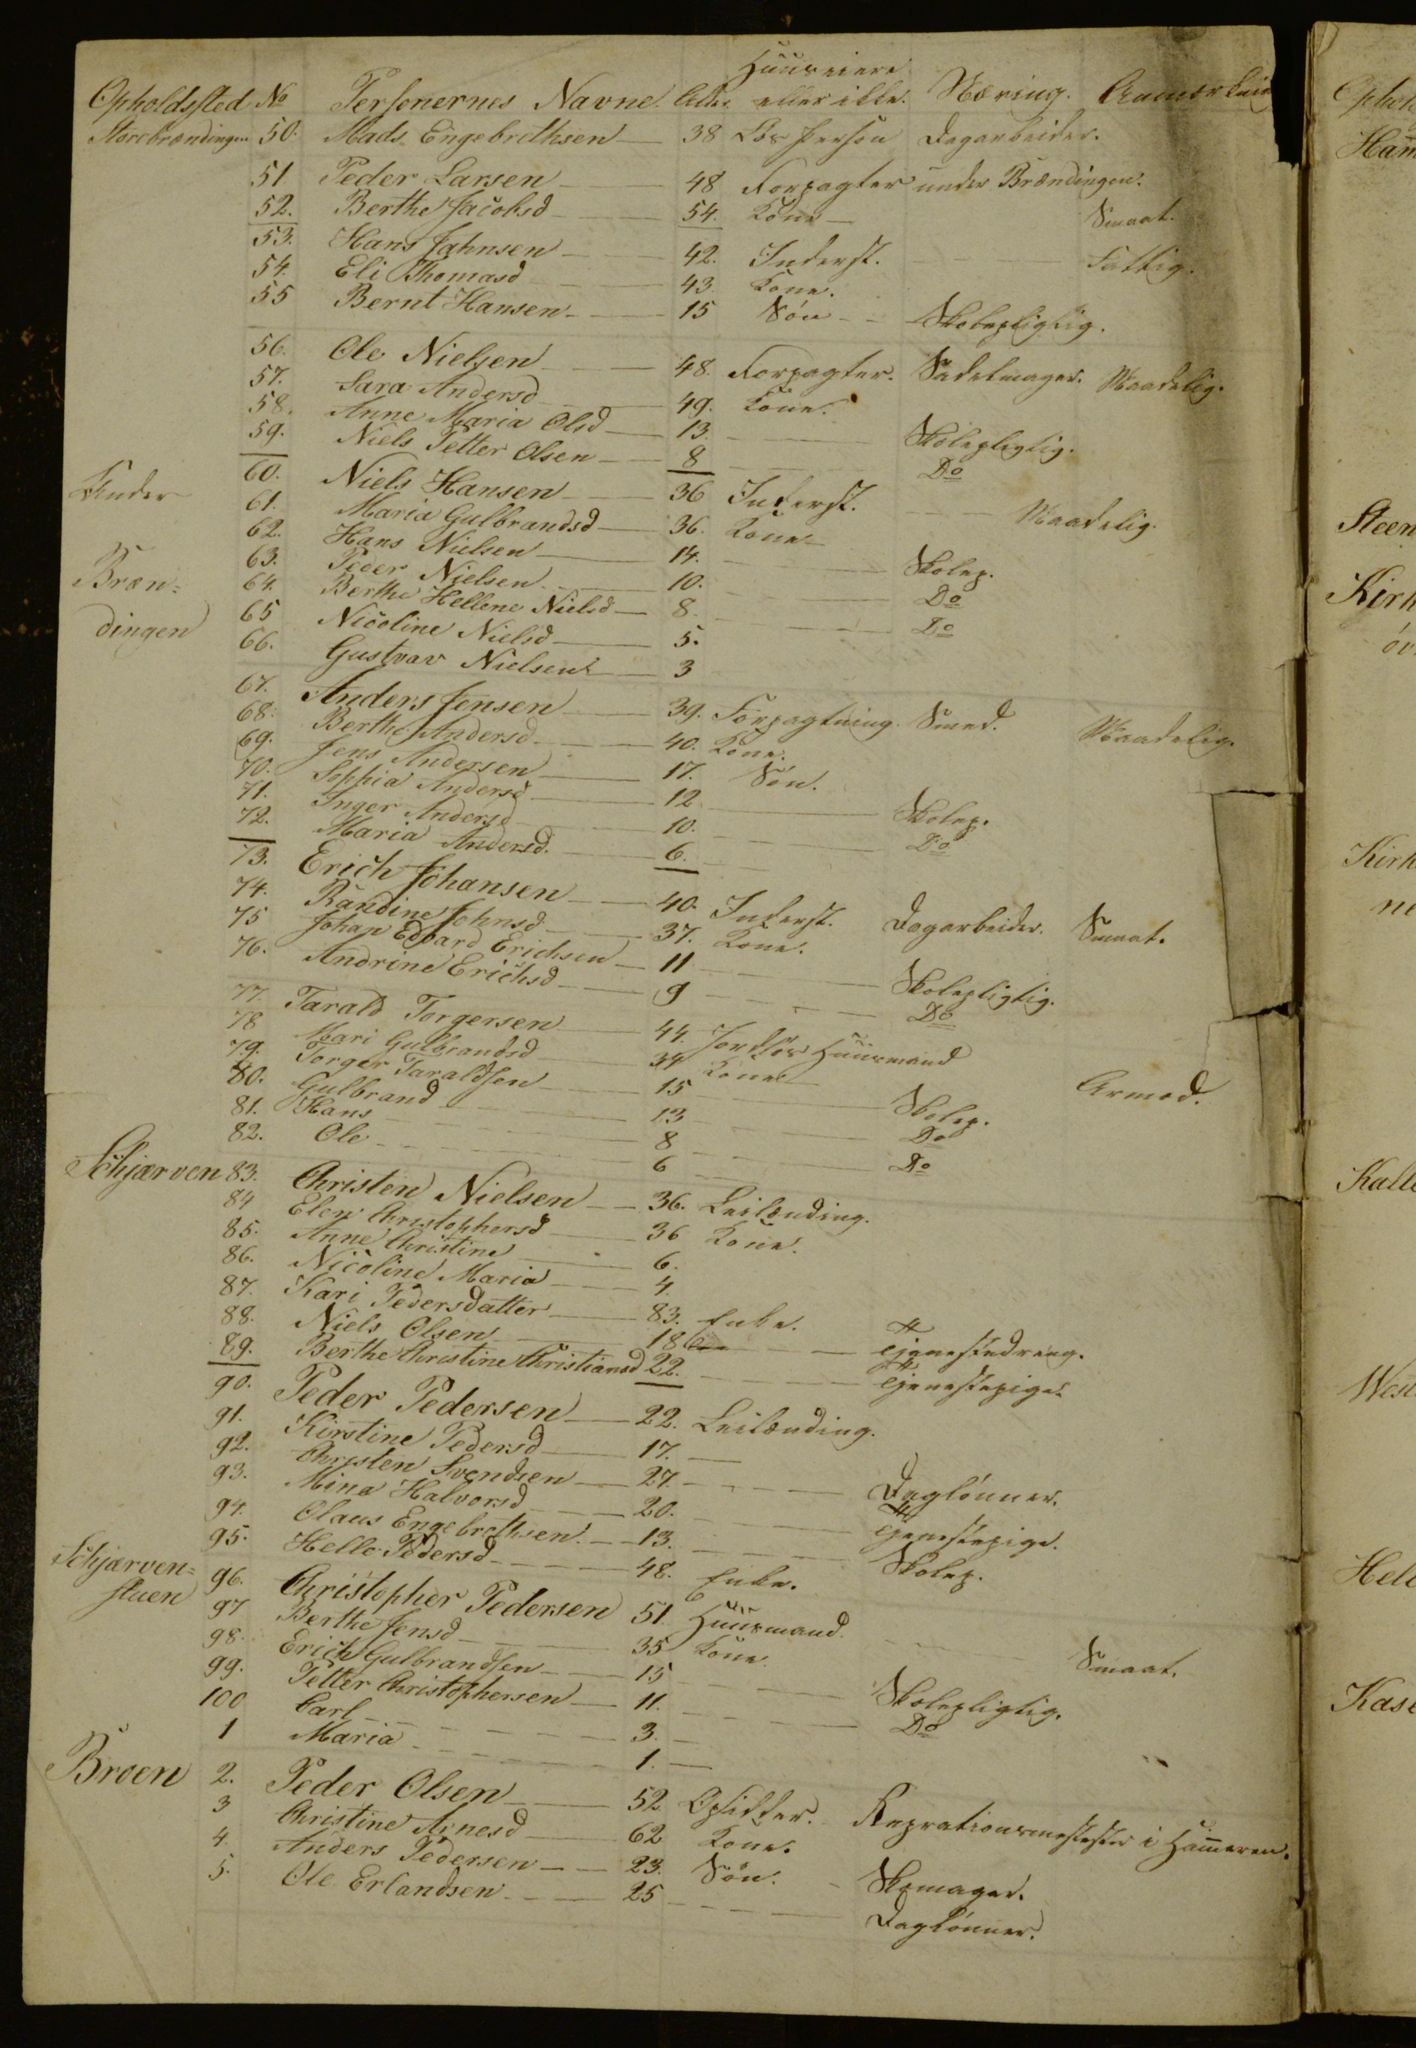 Opholdssted No Personernes Navne. Alder Huuseiere eller ikke. Næring. Anmærkning
Storebrændingen 50. Mads Engebrethsen 38 Løs Person Dagarbeider.
51 Peder Larsen 48 Forpagter under Brændingen.
52. Berthe Jacobsd 54. Kone Smaat.
53. Hans Jahnsen 42. Inderst. Fattig.
54. Eli Thomasd 43. Kone.
55 Bernt Hansen 15 Søn Skolepligtig.
56. Ole Nielsen 48. Forpagter. Sadelmager. Maadelig.
57. Sara Andersd 49. Kone.
58. Anne Maria Olsd 13. Skolepligtig.
59. Niels Petter Olsen 8 Do
Under 60. Niels Hansen 36 Inderst. Maadelig.
61. Maria Gulbrandsd 36. Kone
62. Hans Nielsen 14. Skolep.
Bræn- 63. Peder Nielsen 10. Do
64. Berthe Hellene Nielsd 8 Do
dingen 65 Nicoline Nielsd 5.
66. Gustvav Nielsen 3
67. Anders Jensen 39. Forpagtning. Smed. Maadelig.
68. Berthe Andersd 40. Kone.
69. Jens Andersen 17. Søn.
70. Sophia Andersd 12 Skolep.
71. Inger Andersd 10. Do
72. Maria Andersd. 6.
73. Erich Johansen 40. Inderst. Dagarbeider. Smaat.
74. Randine Johnsd 37. Kone.
75 Johan Edvard Erichsen 11 Skolepligtig.
76. Andrine Erichsd 9 Do
77. Tarald Torgersen 44. Jordløs Huusmand Armod.
78 Mari Gulbrandsd 34 Kone
79. Torger Taraldsen 15 Skolep.
80. Gulbrand 13 Do
81. Hans 8 Do
82. Ole 6
Schjærven 83. Christen Nielsen 36. Leilænding.
84 Elen Christophersd 36 Kone.
85. Anne Christine 6.
86. Nicoline Maria 4.
87. Kari Pedersdatter 83. Enke.
88. Niels Olsen 18 Tjenestedreng.
89. Berthe Christine Christiansd 22. Tjenestepige.
90. Peder Pedersen 22. Leilænding.
91. Kirstine Pedersd 17.
92. Christen Svendsen 27. Daglønner.
93. Mina Halvorsd 20. Tjenestepige.
94. Olaus Engebrethsen. 13. Skolep.
95. Helle Pedersd 48. Enke.
Schjærven- stuen 96. Christopher Pedersen 51. Huusmand. Smaat.
97 Berthe Jensd 35 Kone
98. Erich Gulbrandsen 15 Skolepligtig.
99. Petter Christophersen 11. Do
100 Carl 3.
1 Maria 1.
Broen 2. Peder Olsen 52 Opsidder. Reprationsmester i Hammeren.
3 Christine Arnesd 62 Kone.
4. Anders Pedersen 23. Søn. Skomager.
5. Ole Erlandsen 25 Daglønner.
Ham
Steen
Kirk
Kirk
ne
Kalle
West
Hele
Kase